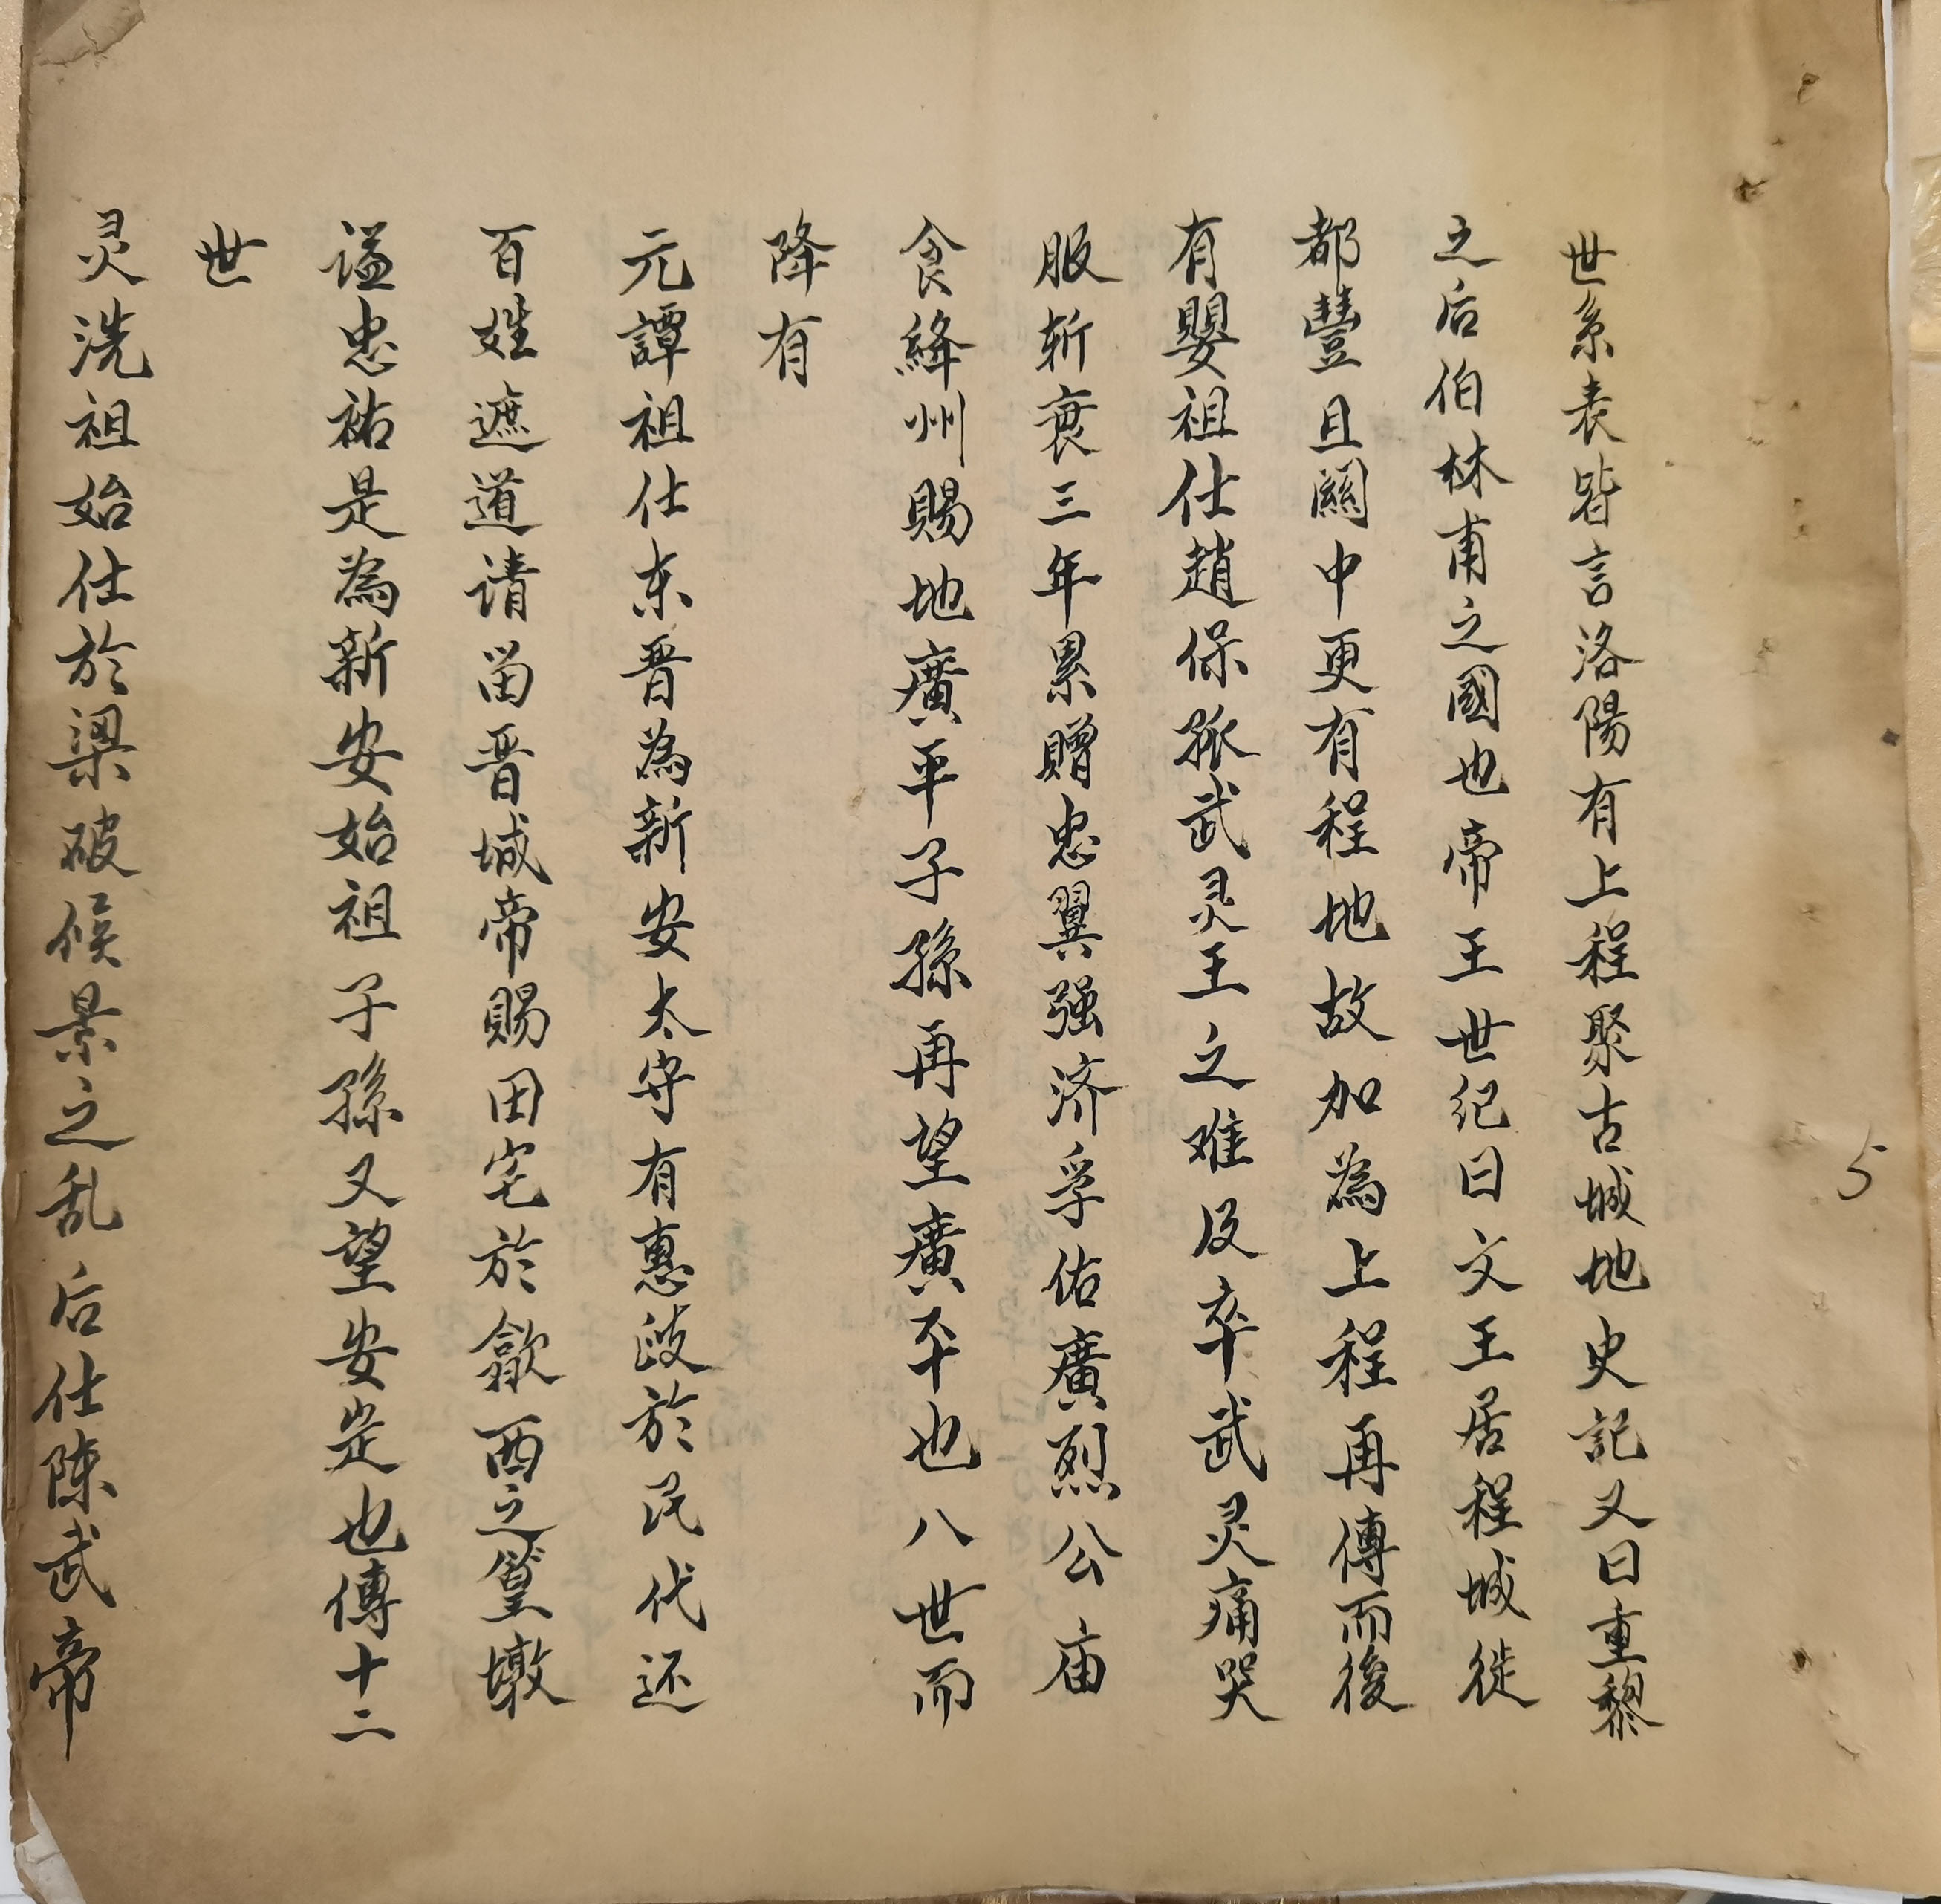 世系表皆言洛陽有上程聚古城地史記又曰重黎
之后伯林甫之國也帝王世纪曰文王居程城徙
都豐且關中更有程地故加為上程再傳而後
有嬰祖仕趙保孤武灵王之难及卒武灵痛哭
服斩衰三年累贈忠翼强济孚佑廣烈公庙
食絳州賜地廣平子孫再望廣平也八世而
降有
元譚祖仕东晋為新安太守有惠政於民代还
百姓遮道请留晋城帝賜田宅於歙西之篁墩
谥忠祐是為新安始祖子孫又望安定也傳十二
世
灵洗祖始仕於梁破候景之乱后仕陳武帝
5